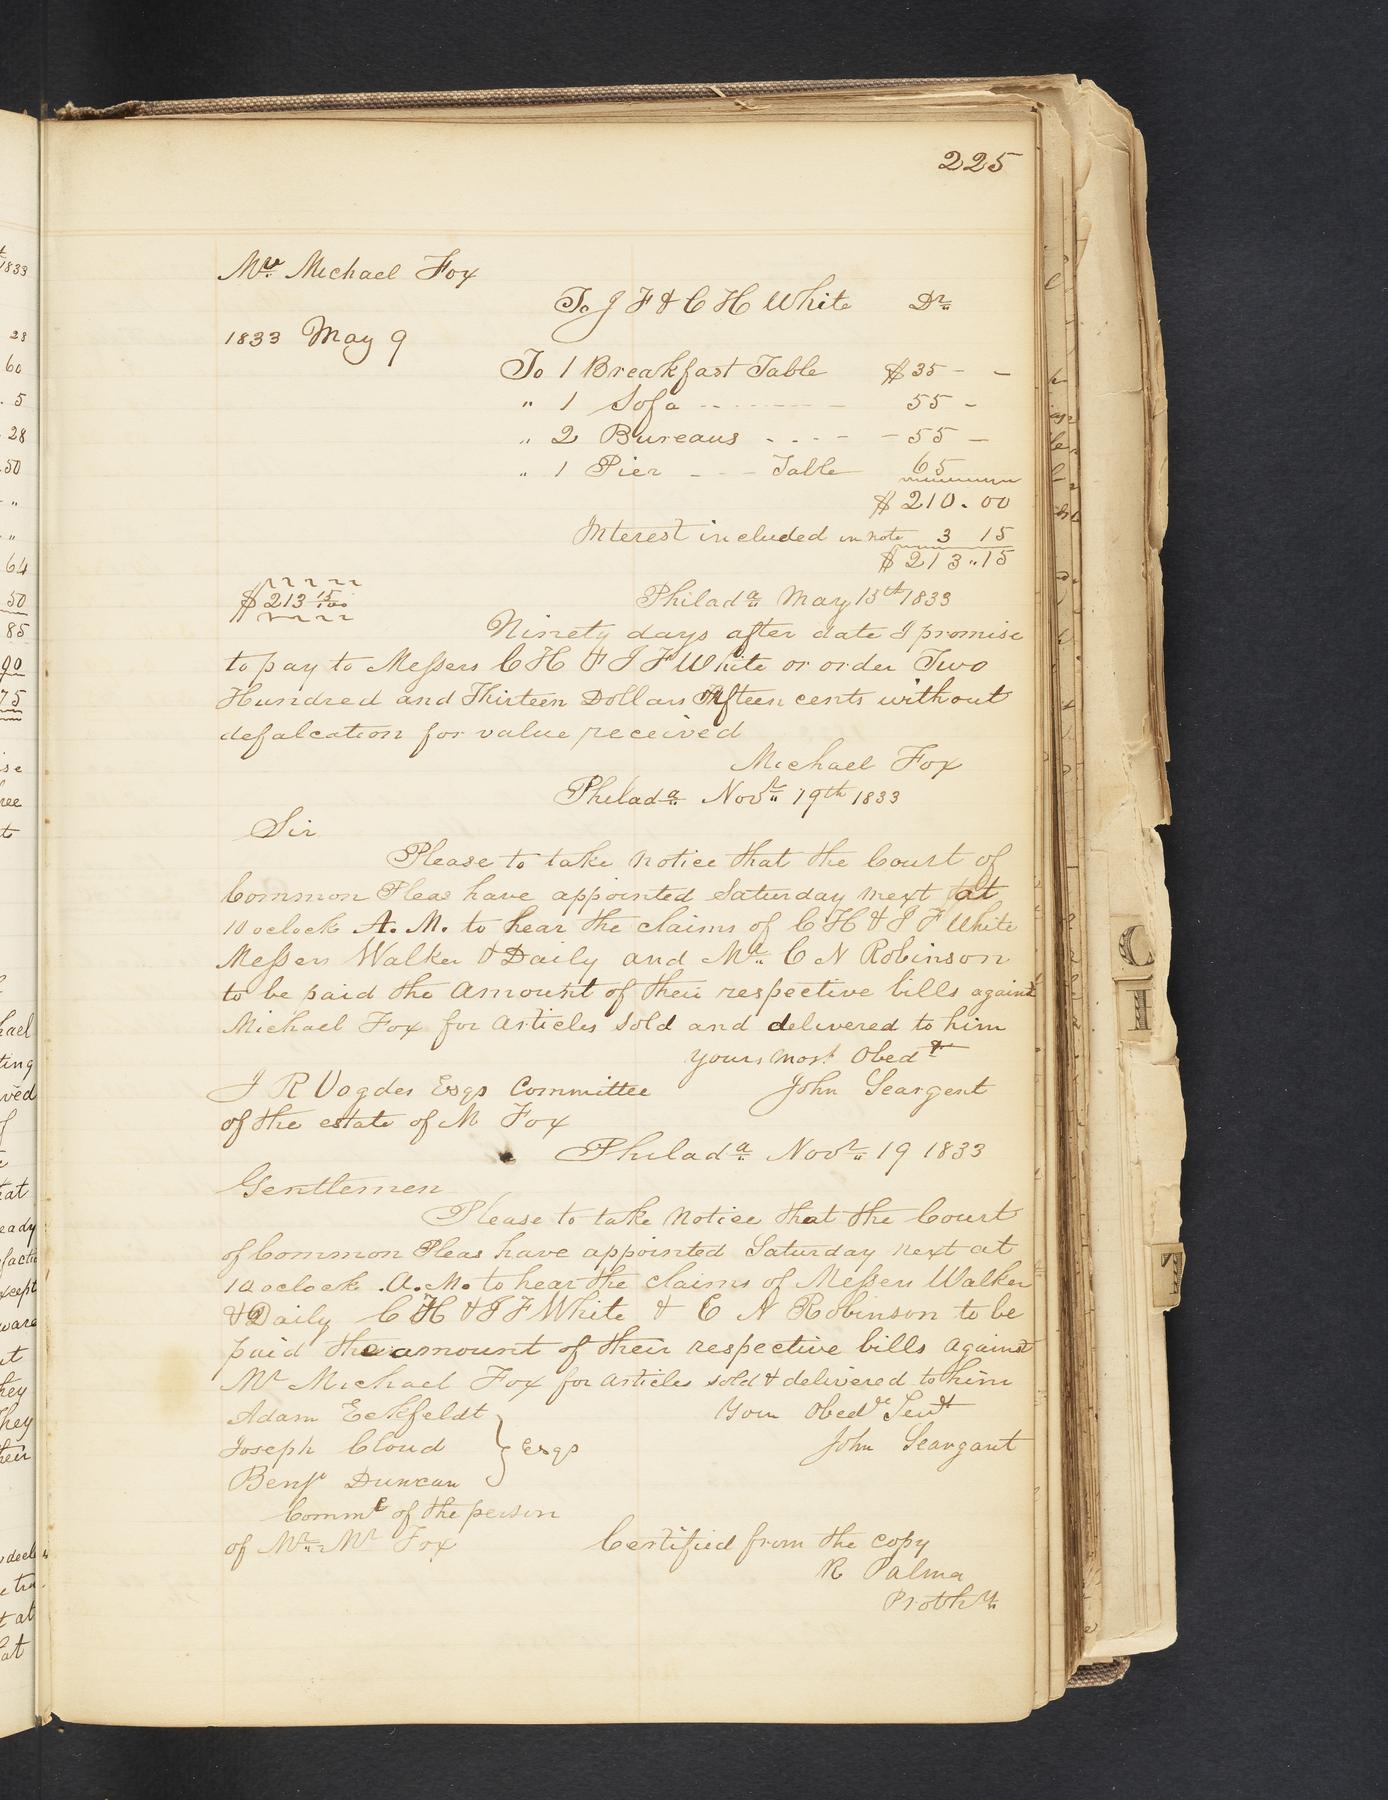 225
Mr. Michael Fox
To J F & C H White Dr.
1833 May 9
To 1 Breakfast Table $35 - -
" 1 Sofa - - - - - - - 55 -
" 2 Bureaus - - - - - 55 -
" 1 Pier - - - Table 65
$ 210.00
Interest included in note 3 15
$ 213"15
$213 15/100 Philada. May 15th 1833
Ninety days after date I promise
to pay to Messers C H & J F White or order Two
Hundred and Thirteen Dollars Fifteen cents without
defalcation for value received
Michael Fox
Philada. Novr. 19th 1833
Sir
Please to take notice that the Court of
Common Pleas have appointed Saturday next at
10 oclock A. M. to hear the claims of C H & J F White
Messers Walker & Daily and Mr. C N Robinson
to be paid the amount of their respective bills against
Michael Fox for articles sold and delivered to him
yours most Obedt
J R Vogdes Esqs Committee John Seargent
of the estate of M Fox
Philada. Novr. 19 1833
Gentlemen
Please to take notice that the Court
of Common Pleas have appointed Saturday next at
10 oclock .A.M. to hear the claims of Messers Walker
& Daily C H & J F White & C N Robinson to be
paid the amount of their respective bills against
Mr Michael Fox for articles sold & delivered to him
Adam Eckfeldt Your Obed Servt
Joseph Cloud } Esqs John Seargant
Benj Duncan
Commt of the person
of Mr. Ml Fox Certified from the copy
R Palmer
Prothy.